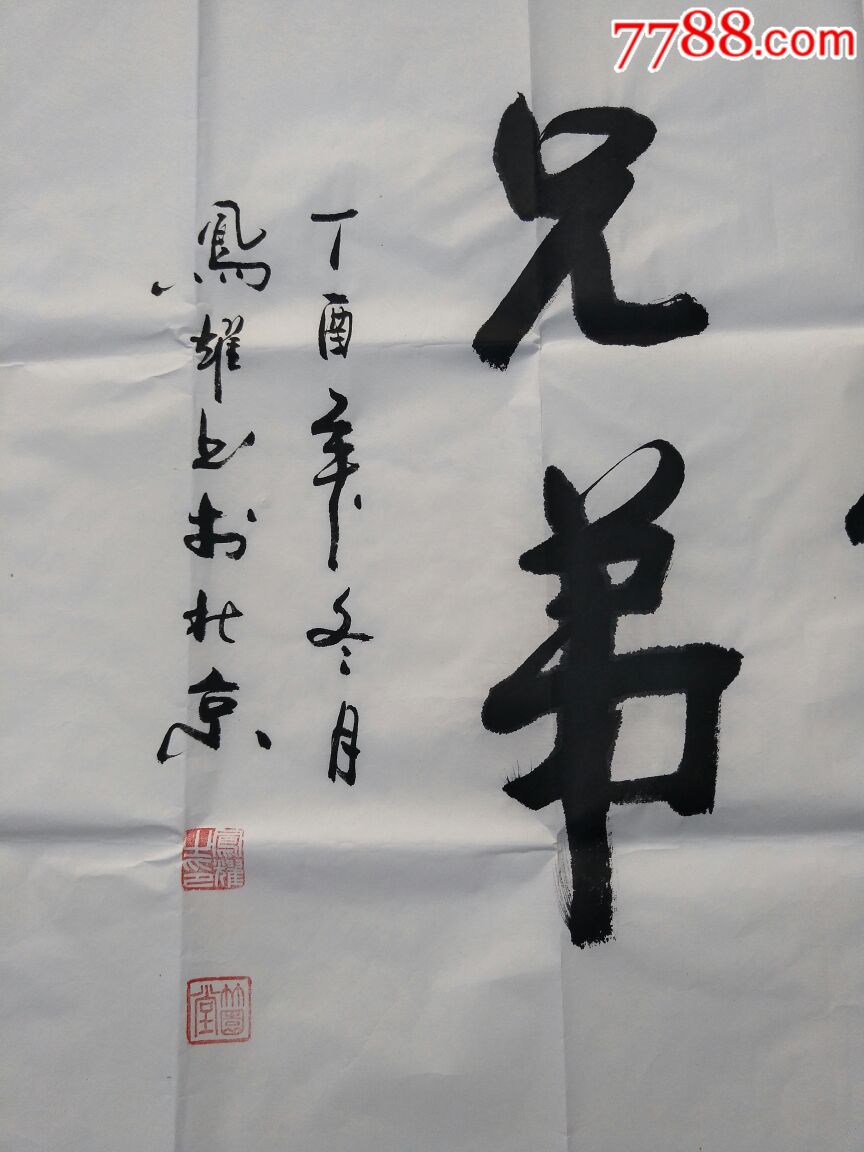 7788.com
兄弟
丁酉年冬月
鳳雄书於北京